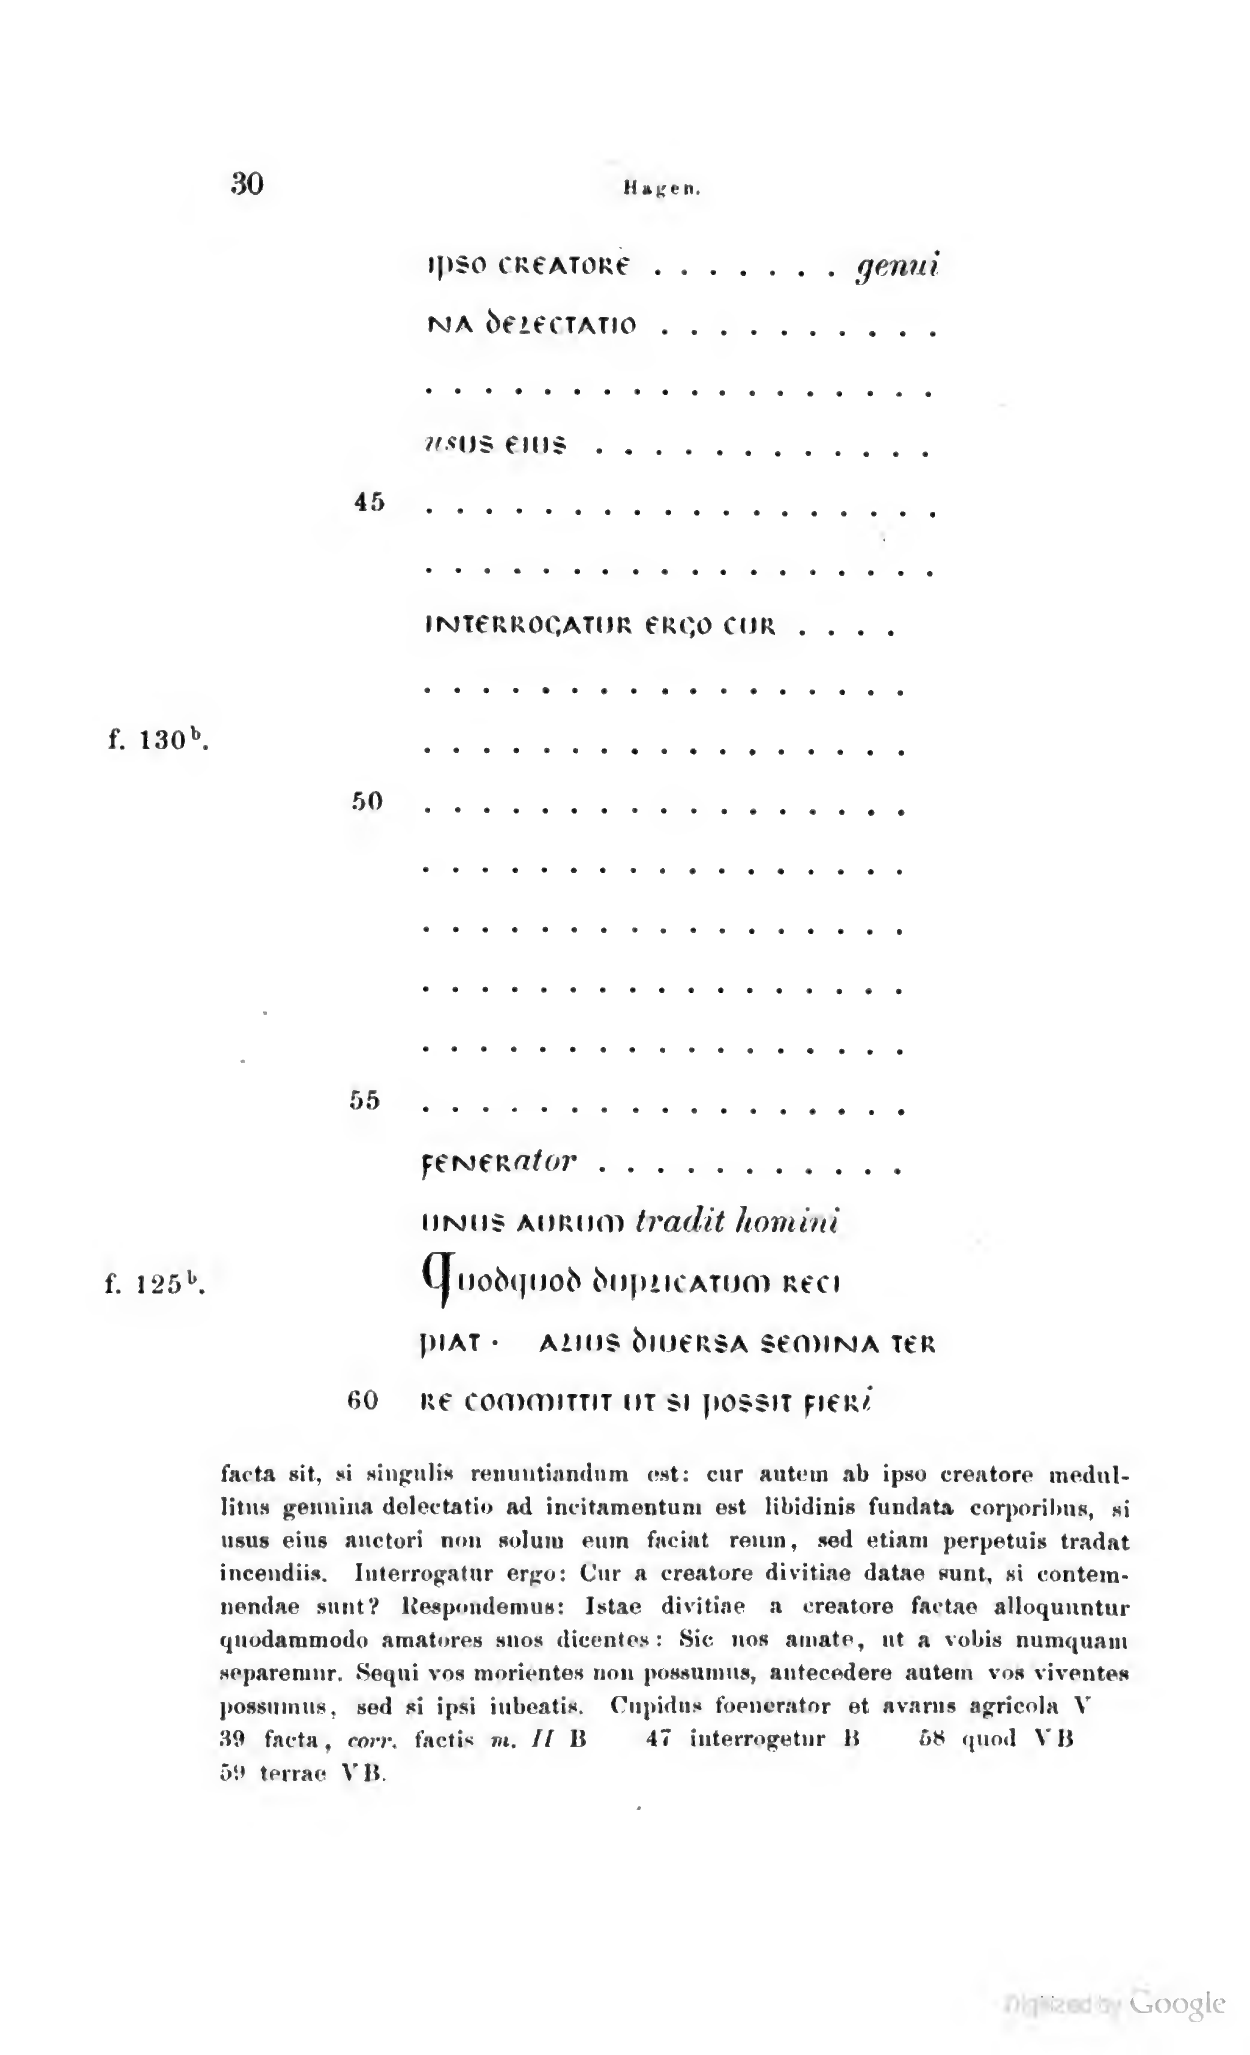 30 Hagen.
IPSO CREATORE . . . . . . . genui
NA DELECTATIO . . . . . . . . . .
. . . . . . . . . . . . . . . . . .
usUS EIUS . . . . . . . . . . . .
45 . . . . . . . . . . . . . . . . . .
. . . . . . . . . . . . . . . . . .
INTERROGATUR ERGO CUR . . . .
. . . . . . . . . . . . . . . . .
f. 130b. . . . . . . . . . . . . . . . . .
50 . . . . . . . . . . . . . . . . .
. . . . . . . . . . . . . . . . .
. . . . . . . . . . . . . . . . .
. . . . . . . . . . . . . . . . .
. . . . . . . . . . . . . . . . .
55 . . . . . . . . . . . . . . . . .
FENERator . . . . . . . . . . .
UNUS AURUM tradit homini
f. 125b. QUODQUOD DUPLICATUM RECI
PIAT · ALIUS DIUERSA SEMINA TER
60 RE COMMITTIT UT SI POSSIT FIERi
facta sit, si singulis renuntiandum est: cur autem ab ipso creatore medul-
litus genuina delectatio ad incitamentum est libidinis fundata corporibus, si
usus eius auctori non solum eum faciat reum, sed etiam perpetuis tradat
incendiis. Interrogatur ergo: Cur a creatore divitiae datae sunt, si contem-
nendae sunt? Respondemus: Istae divitiae a creatore factae alloquuntur
quodammodo amatores suos dicentes: Sic nos amate, ut a vobis numquam
separemur. Sequi vos morientes non possumus, antecedere autem vos viventes
possumus, sed si ipsi iubeatis. Cupidus foenerator et avarus agricola V
39 facta, corr. factis m. II B 47 interrogetur B 58 quod VB
59 terrae VB.
Digitized by Google